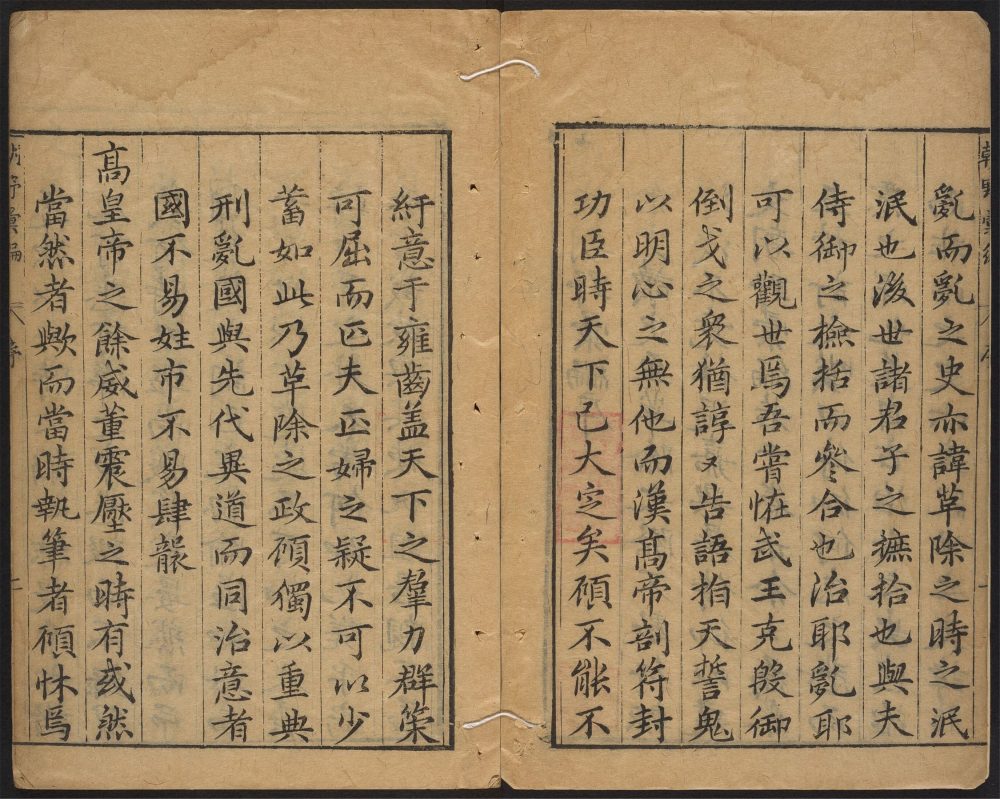 亂而亂之史亦諱草除之時之泯
泯也後世諸君子之摭拾也與夫
侍御之檢括而參合也治耶亂耶
可以觀世焉吾嘗恠武王克殷御
倒戈之衆猶諄〻告語指天誓鬼
以明心之無他而漢高帝剖符封
功臣時天下已大定矣碩不能不
紆意于雍齒盖天下之羣力群策
可屈而匹夫匹婦之疑不可以少
蓄如此乃草除之政碩獨以重典
刑亂國與先代異道而同治意者
國不易姓市不易肆襲
高皇帝之餘威董震壓之時有或然
當然者歟而當時執筆者碩怵焉